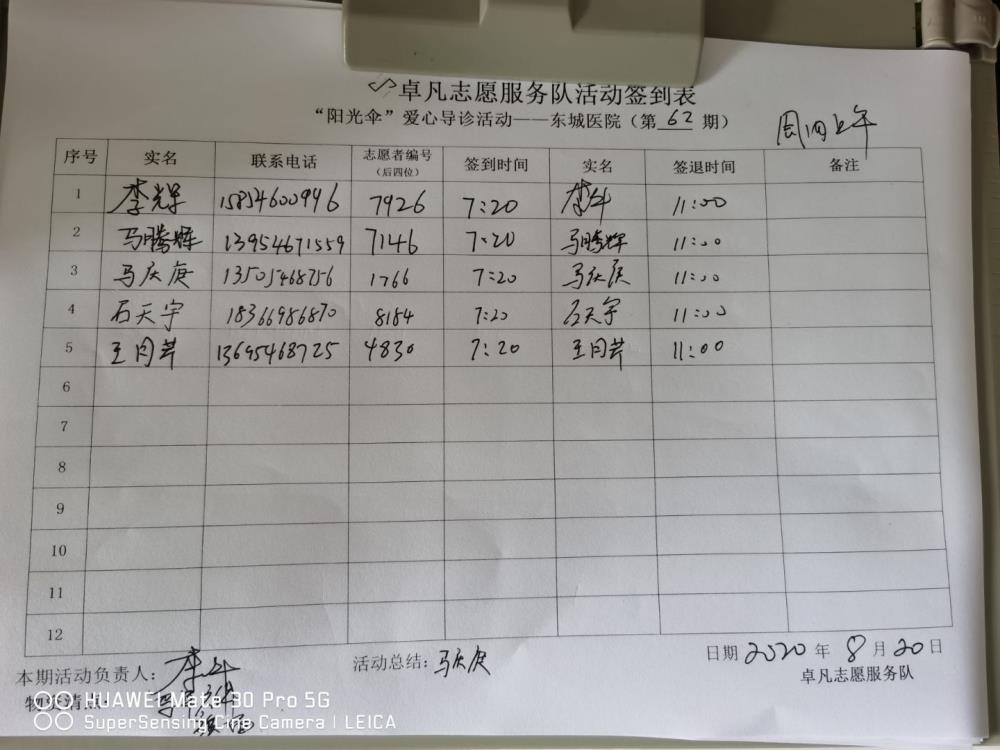 卓凡志愿服务队活动签到表
“阳光伞”爱心导诊活动——东城医院（第 62 期）
周四上午
序号 实名 联系电话 志愿者编号（后四位） 签到时间 实名 签退时间 备注
1 李光军 15854600996 7926 7:20 11:00
2 马腾辉 13954671559 7146 7:20 马腾辉 11:00
3 马庆庚 13505468756 1766 7:20 马庆庚 11:00
4 石天宇 18366986870 8184 7:20 石天宇 11:00
5 王月芹 13695468725 4830 7:20 王月芹 11:00
6
7
8
9
10
11
12
本期活动负责人：
活动总结：马庆庚
日期 2020 年 8 月 20 日
物资清点：
卓凡志愿服务队
HUAWEI Mate 30 Pro 5G
SuperSensing Cine Camera | LEICA